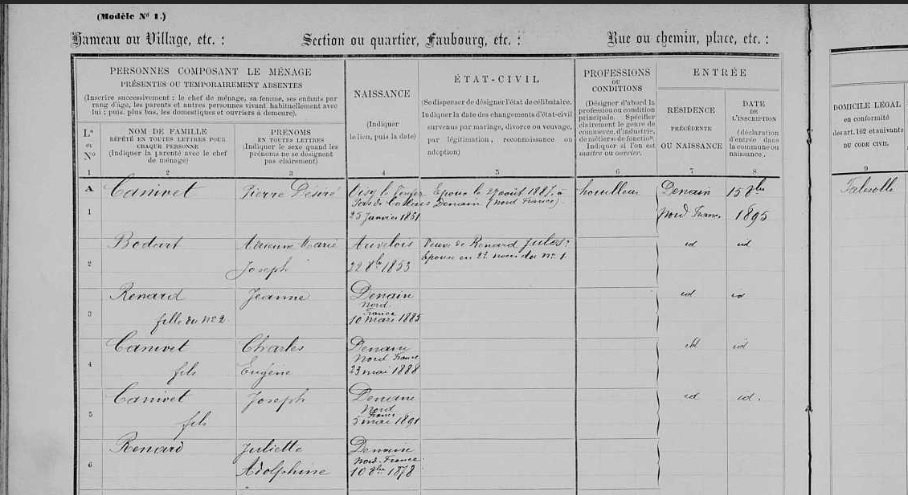 (Modèle Nº 1.)
Hameau ou Village, etc. :
Section ou quartier, Faubourg, etc. :
Rue ou chemin, place, etc. :
PERSONNES COMPOSANT LE MÉNAGE
PRÉSENTES OU TEMPORAIREMENT ABSENTES
(Inscrire successivement : le chef de ménage, sa femme, ses enfants par
rang d'âge, les parents et autres personnes vivant habituellement avec
lui ; puis, plus bas, les domestiques et ouvriers à demeure).
NAISSANCE
(Indiquer
le lieu, puis la date)
ÉTAT-CIVIL
(Se dispenser de désigner l'état de célibataire.
Indiquer la date des changements d'état-civil
survenus par mariage, divorce ou veuvage,
par légitimation, reconnaissance ou
adoption)
PROFESSIONS
OU
CONDITIONS
(Désigner d'abord la
profession ou condition
principale. Spécifier
clairement le genre de
commerce, d'industrie,
de métier, de fonction.
Indiquer si l'on est
maître ou ouvrier.
ENTRÉE
RÉSIDENCE
PRÉCÉDENTE
OU NAISSANCE
DATE
DE
L'INSCRIPTION
(déclaration
d'entrée dans
la commune ou
naissance.
DOMICILE LÉGAL
en conformité
des art. 102 et suivants
DU CODE CIVIL.
Nº
NOM DE FAMILLE
RÉPÉTÉ EN TOUTES LETTRES POUR
CHAQUE PERSONNE
(Indiquer la parenté avec le chef
de ménage)
PRÉNOMS
EN TOUTES LETTRES
(Indiquer le sexe quand les
prénoms ne se désignent
pas clairement)
1 2 3 4 5 6 7 8 9
A
1 Canivet Pierre Désiré
25 Janvier 1851
Epoux le 29 août 1887 à
Denain (Nord France)
houilleur
Denain
Nord France
15 8bre
1895
2 Bodart
Marie
Joseph
Auvelois
22 8bre 1853
Veuve de Renard Jules.
Epouse en 2es noces du nº 1
id id
3 Renard
fille du nº 2
Jeanne
Denain
Nord
France
10 mars 1885
id id
4 Canivet
fils
Charles
Eugène
Denain
Nord France
23 mai 1888
id id
5 Canivet
fils
Joseph
Denain
Nord
France
5 mai 1891
id id.
6 Renard
Juliette
Adolphine
Denain
Nord-France
10 8bre 1878